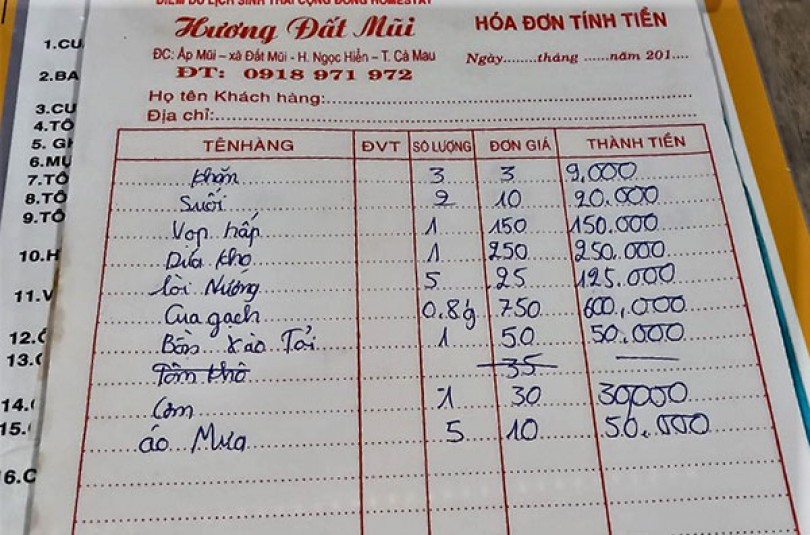 ĐIỂM DU LỊCH SINH THÁI CỘNG ĐỒNG HOMESTAY
Hương Đất Mũi
HÓA ĐƠN TÍNH TIỀN
ĐC: Ấp Mũi – xã Đất Mũi - H. Ngọc Hiển – T. Cà Mau
Ngày.........tháng ......năm 201....
ĐT: 0918 971 972
Họ tên Khách hàng:
Địa chỉ:
TÊN HÀNG ĐVT SỐ LƯỢNG ĐƠN GIÁ THÀNH TIỀN
khăn 3 3 9.000
Suối 2 10 20.000
Vọp hấp 1 150 150.000
Dứa kho 1 250 250.000
lòi Nướng 5 25 125.000
Cua gạch 0.8 750 600.000
Bồn xào Tỏi 1 50 50.000
Tôm khô 35
Cơm 1 30 30000
áo Mưa 5 10 50.000
1.CU
2.BA
3.CU
4.TÔ
5. GỎ
6.MỰ
7.TÔ
8.TÔ
9.TÔ
10.H
11.V
12.Ố
13.
14.
15.
6.C